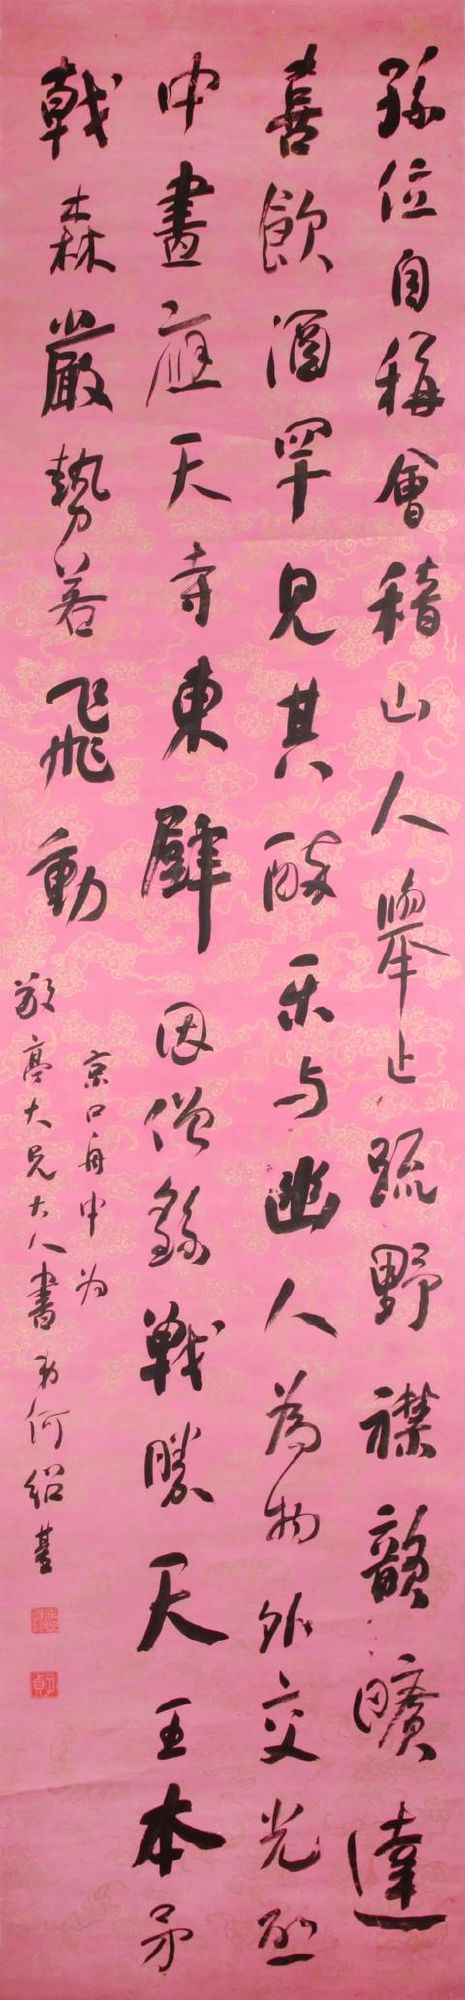 孫位自稱會稽山人舉止疏野襟韻曠達
喜飲酒罕見其醉樂與幽人為物外交光啟
中畫應天寺東壁因僧繇戰勝天王本矛
戟森嚴勢若飛動
京口舟中為
敬亭大兄大人書弟何紹基
子貞